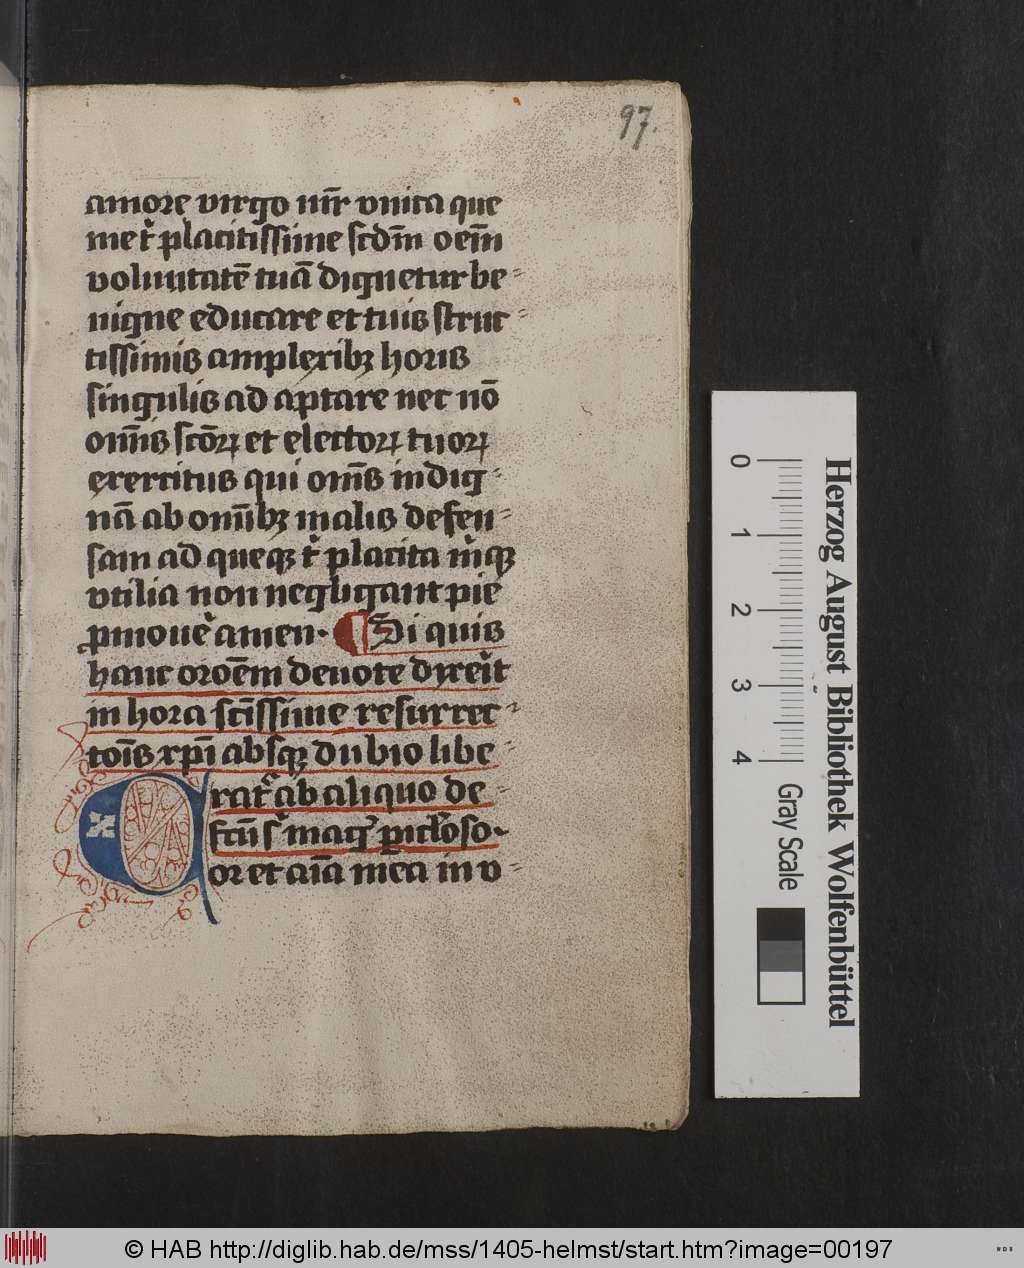 97.
amore virgo mr̄ vnita que
me t᷑ placitissime scdm̄ oem̄
voluntatē tuā dignetur be⸗
nigne educare et tuis struc⸗
tissimis amplexibꝫ horis
singulis ad aptare nec nō
om̄is scōꝝ et electoꝝ tuoꝝ
exercitus qui om̄s indig⸗
nā ab om̄ibꝫ malis defen⸗
sam ad queqꝫ t᷑ placita m̄qꝫ
vtilia non negligant pie
ꝓmoue᷑ amen. Si quis
hanc oroēm deuote dyxeīt
in hora scīssime resurrec⸗
toīs xp̄i absqꝫ dubio libe⸗
rat᷑ ab aliquo de⸗
fcūs᷑ maq᷑ ꝑiclōso.
Cor et aīa mea in v⸗
0 1 2 3 4
Gray Scale
Herzog August Bibliothek Wolfenbüttel
© HAB http://diglib.hab.de/mss/1405-helmst/start.htm?image=00197